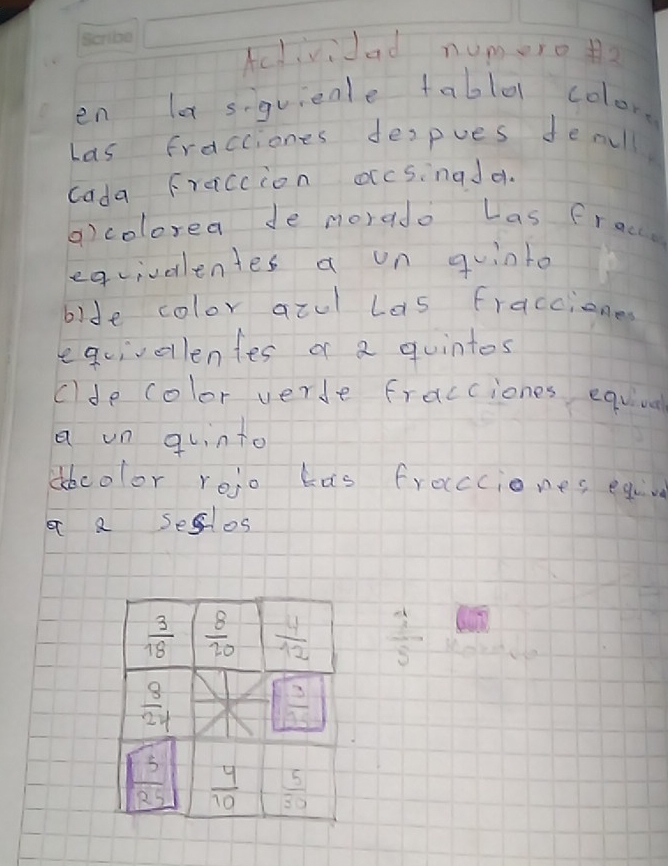 Scribe
Actividad numero #2
en la siguiente tabla colorea
Las fracciones despues de
cada fraccion acsinada.
a) colorea de morado Las
equivalentes a un quinto
b) de color azul Las fracciones
equivallentes a 2 quintos
c) de color verde fracciones
a un quinto
color rojo Las fracciones
a 2 sestos
3/18 8/20 4/12
8/24
5/25 4/10 5/30